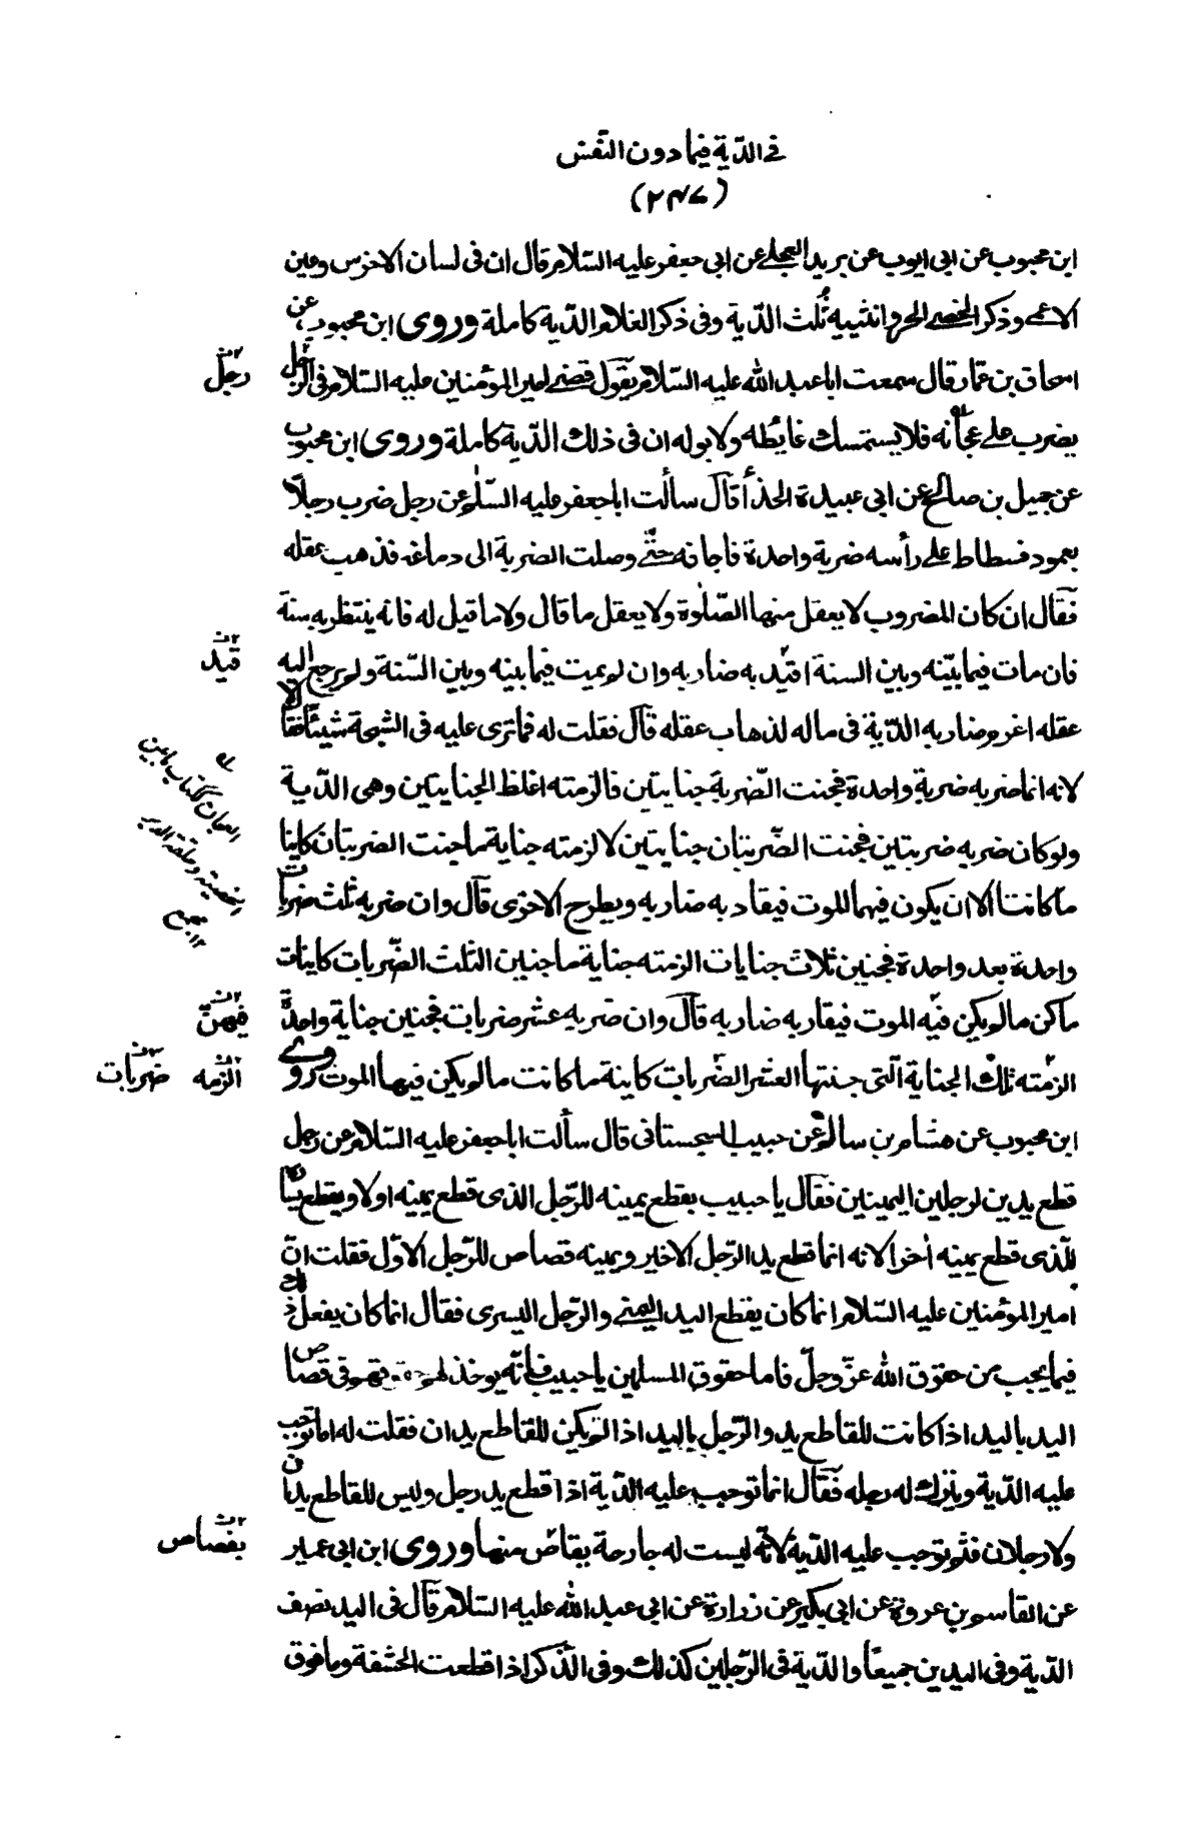 فی الدّیة فیما دون النّفس
(۲۴۷)
ابن محبوب عن ابی ایوب عن برید العجلی عن ابی جعفر علیه السّلام قال ان فی لسان الاخرس وعین
الاعمی وذکر الخصی الحر وانثییه ثُلث الدّیة وفی ذکر الغلام الدّیة کاملة وروی ابن محبوب عن
اسحاق بن عمّار قال سمعت ابا عبد الله علیه السّلام یقول قضی امیر المؤمنین علیه السّلام فی الرّجل
رجلٌ
یضرب علی عجانه فلا یستمسک غایطه ولا بوله ان فی ذلک الدّیة کاملة وروی ابن محبوب
عن جمیل بن صالح عن ابی عبیدة الحذأ قال سألت ابا جعفر علیه السّلم عن رجل ضرب رجلاً
بعمود فسطاط علی رأسه ضربة واحدة فاجافه حتّی وصلت الضربة الی دماغه فذهب عقله
فقال ان کان المضروب لا یعقل منها الصّلوة ولا یعقل ما قال ولا ما قیل له فانه ینتظر به سنة
فان مات فیما بینه وبین السنة اقید به ضاربه وان لم یمت فیما بینه وبین السّنة ولم یرجع الیه
قید
عقله اغرم ضاربه الدّیة فی ماله لذهاب عقله قال فقلت له فما تری علیه فی الشجة شیئاً فقال لا
لانه انما ضربه ضربة واحدة فجنت الضّربة جنایتین فالزمته اغلظ الجنایتین وهی الدّیة
ولو کان ضربه ضربتین فجنت الضّربتان جنایتین لالزمته جنایة ما جنت الضربتان کاینا
ما کانتا الا ان یکون فیهما الموت فیقاد به ضاربه ویطرح الاخری قال وان ضربه ثلث ضربات
واحدة بعد واحدة فجنین ثلاث جنایات الزمته جنایة ما جنین الثلث الضّربات کاینات
ما کن ما لم یکن فیه الموت فیقاد به ضاربه قال وان ضربه عشر ضربات فجنین جنایة واحدةً
فیهنّ
الزمته تلک الجنایة الّتی جنتها العشر الضّربات کاینة ما کانت ما لم یکن فیها الموت وروی
الزمه ضربات
ابن محبوب عن هشام بن سالم عن حبیب السجستانی قال سألت ابا جعفر علیه السّلام عن رجل
قطع یدین لرجلین الیمینین فقال یا حبیب یقطع یمینه للرّجل الذی قطع یمینه اولا ویقطع یساره
للّذی قطع یمینه اخرا لانه انما قطع ید الرّجل الاخیر ویمینه قصاص للرّجل الاوّل فقلت انّ
امیر المؤمنین علیه السّلام انما کان یقطع الید الیمنی والرّجل الیسری فقال انما کان یفعل ذلک
فیما یجب من حقوق الله عزّ وجلّ فاما حقوق المسلمین یا حبیب فانّه یوخذ لهم حقوقهم فی قصاص
الید بالید اذا کانت للقاطع ید والرّجل بالید اذا لم یکن للقاطع یدان فقلت له اما توجب
علیه الدّیة ویترک له رجله فقال انما توجب علیه الدّیة اذا قطع ید رجل ولیس للقاطع یدان
ولا رجلان فثم توجب علیه الدّیة لانّه لیست له جارحة یقاصّ منها وروی ابن ابی عمیر
بقصاص
عن القاسم بن عروة عن ابی بکیر عن زرارة عن ابی عبد الله علیه السّلام قال فی الید نصف
الدّیة وفی الیدین جمیعاً والدّیة فی الرّجلین کذلک وفی الذّکر اذا قطعت الحشفة وما فوق